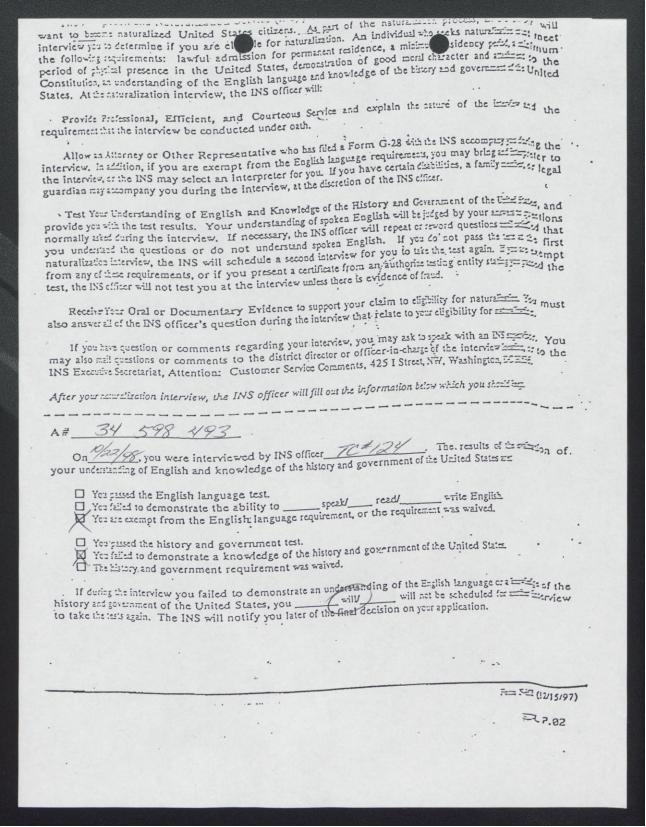 want to become naturalized United States citizens. As part of the naturalization process, will
interview you to determine if you are for naturalization. An individual who seeks naturalization must meet
the following requirements: lawful admission for permanent residence, a minimum residency period, a minimum
period of physical presence in the United States, demonstration of good moral character and to the
Constitution, an understanding of the English language and knowledge of the history and government of the United
States. At the naturalization interview, the INS officer will:
· Provide Professional, Efficient, and Courteous Service and explain the nature of the interview and the
requirement that the interview be conducted under oath.
Allow an Attorney or Other Representative who has filed a Form G-28 with the INS accompany you during the
interview. In addition, if you are exempt from the English language requirements, you may bring an interpreter to
the interview, or the INS may select an interpreter for you. If you have certain disabilities, a family member or legal
guardian may accompany you during the interview, at the discretion of the INS officer.
· Test Your Understanding of English and Knowledge of the History and Government of the United States, and
provide you with the test results. Your understanding of spoken English will be judged by your answers to questions
normally asked during the interview. If necessary, the INS officer will repeat or reword questions that
you understand the questions or do not understand spoken English. If you do not pass the test at the first
naturalization interview, the INS will schedule a second interview for you to take the test again. If you are exempt
from any of these requirements, or if you present a certificate from an authorize testing entity the
test, the INS officer will not test you at the interview unless there is evidence of fraud.
Receive Your Oral or Documentary Evidence to support your claim to eligibility for You must
also answer all of the INS officer's question during the interview that relate to your eligibility for
If you have question or comments regarding your interview, you may ask to speak with an INS You
may also mail questions or comments to the district director or officer-in-charge of the interview or to the
INS Executive Secretariat, Attention: Customer Service Comments, 425 I Street, NW, Washington,
After your naturalization interview, the INS officer will fill out the information below which you
A# 34 598 493
On 10/22/98, you were interviewed by INS officer TC#124. The results of of
your understanding of English and knowledge of the history and government of the United States are
You passed the English language test.
You failed to demonstrate the ability to speak/ read/ write English
You are exempt from the English language requirement, or the requirement was waived.
You passed the history and government test.
You failed to demonstrate a knowledge of the history and government of the United States.
The history, and government requirement was waived.
If during the interview you failed to demonstrate an understanding of the English language or a of the
history and government of the United States, you will/ will not be scheduled for interview
to take the tests again. The INS will notify you later of the final decision on your application.
Form (12/15/97)
P.02